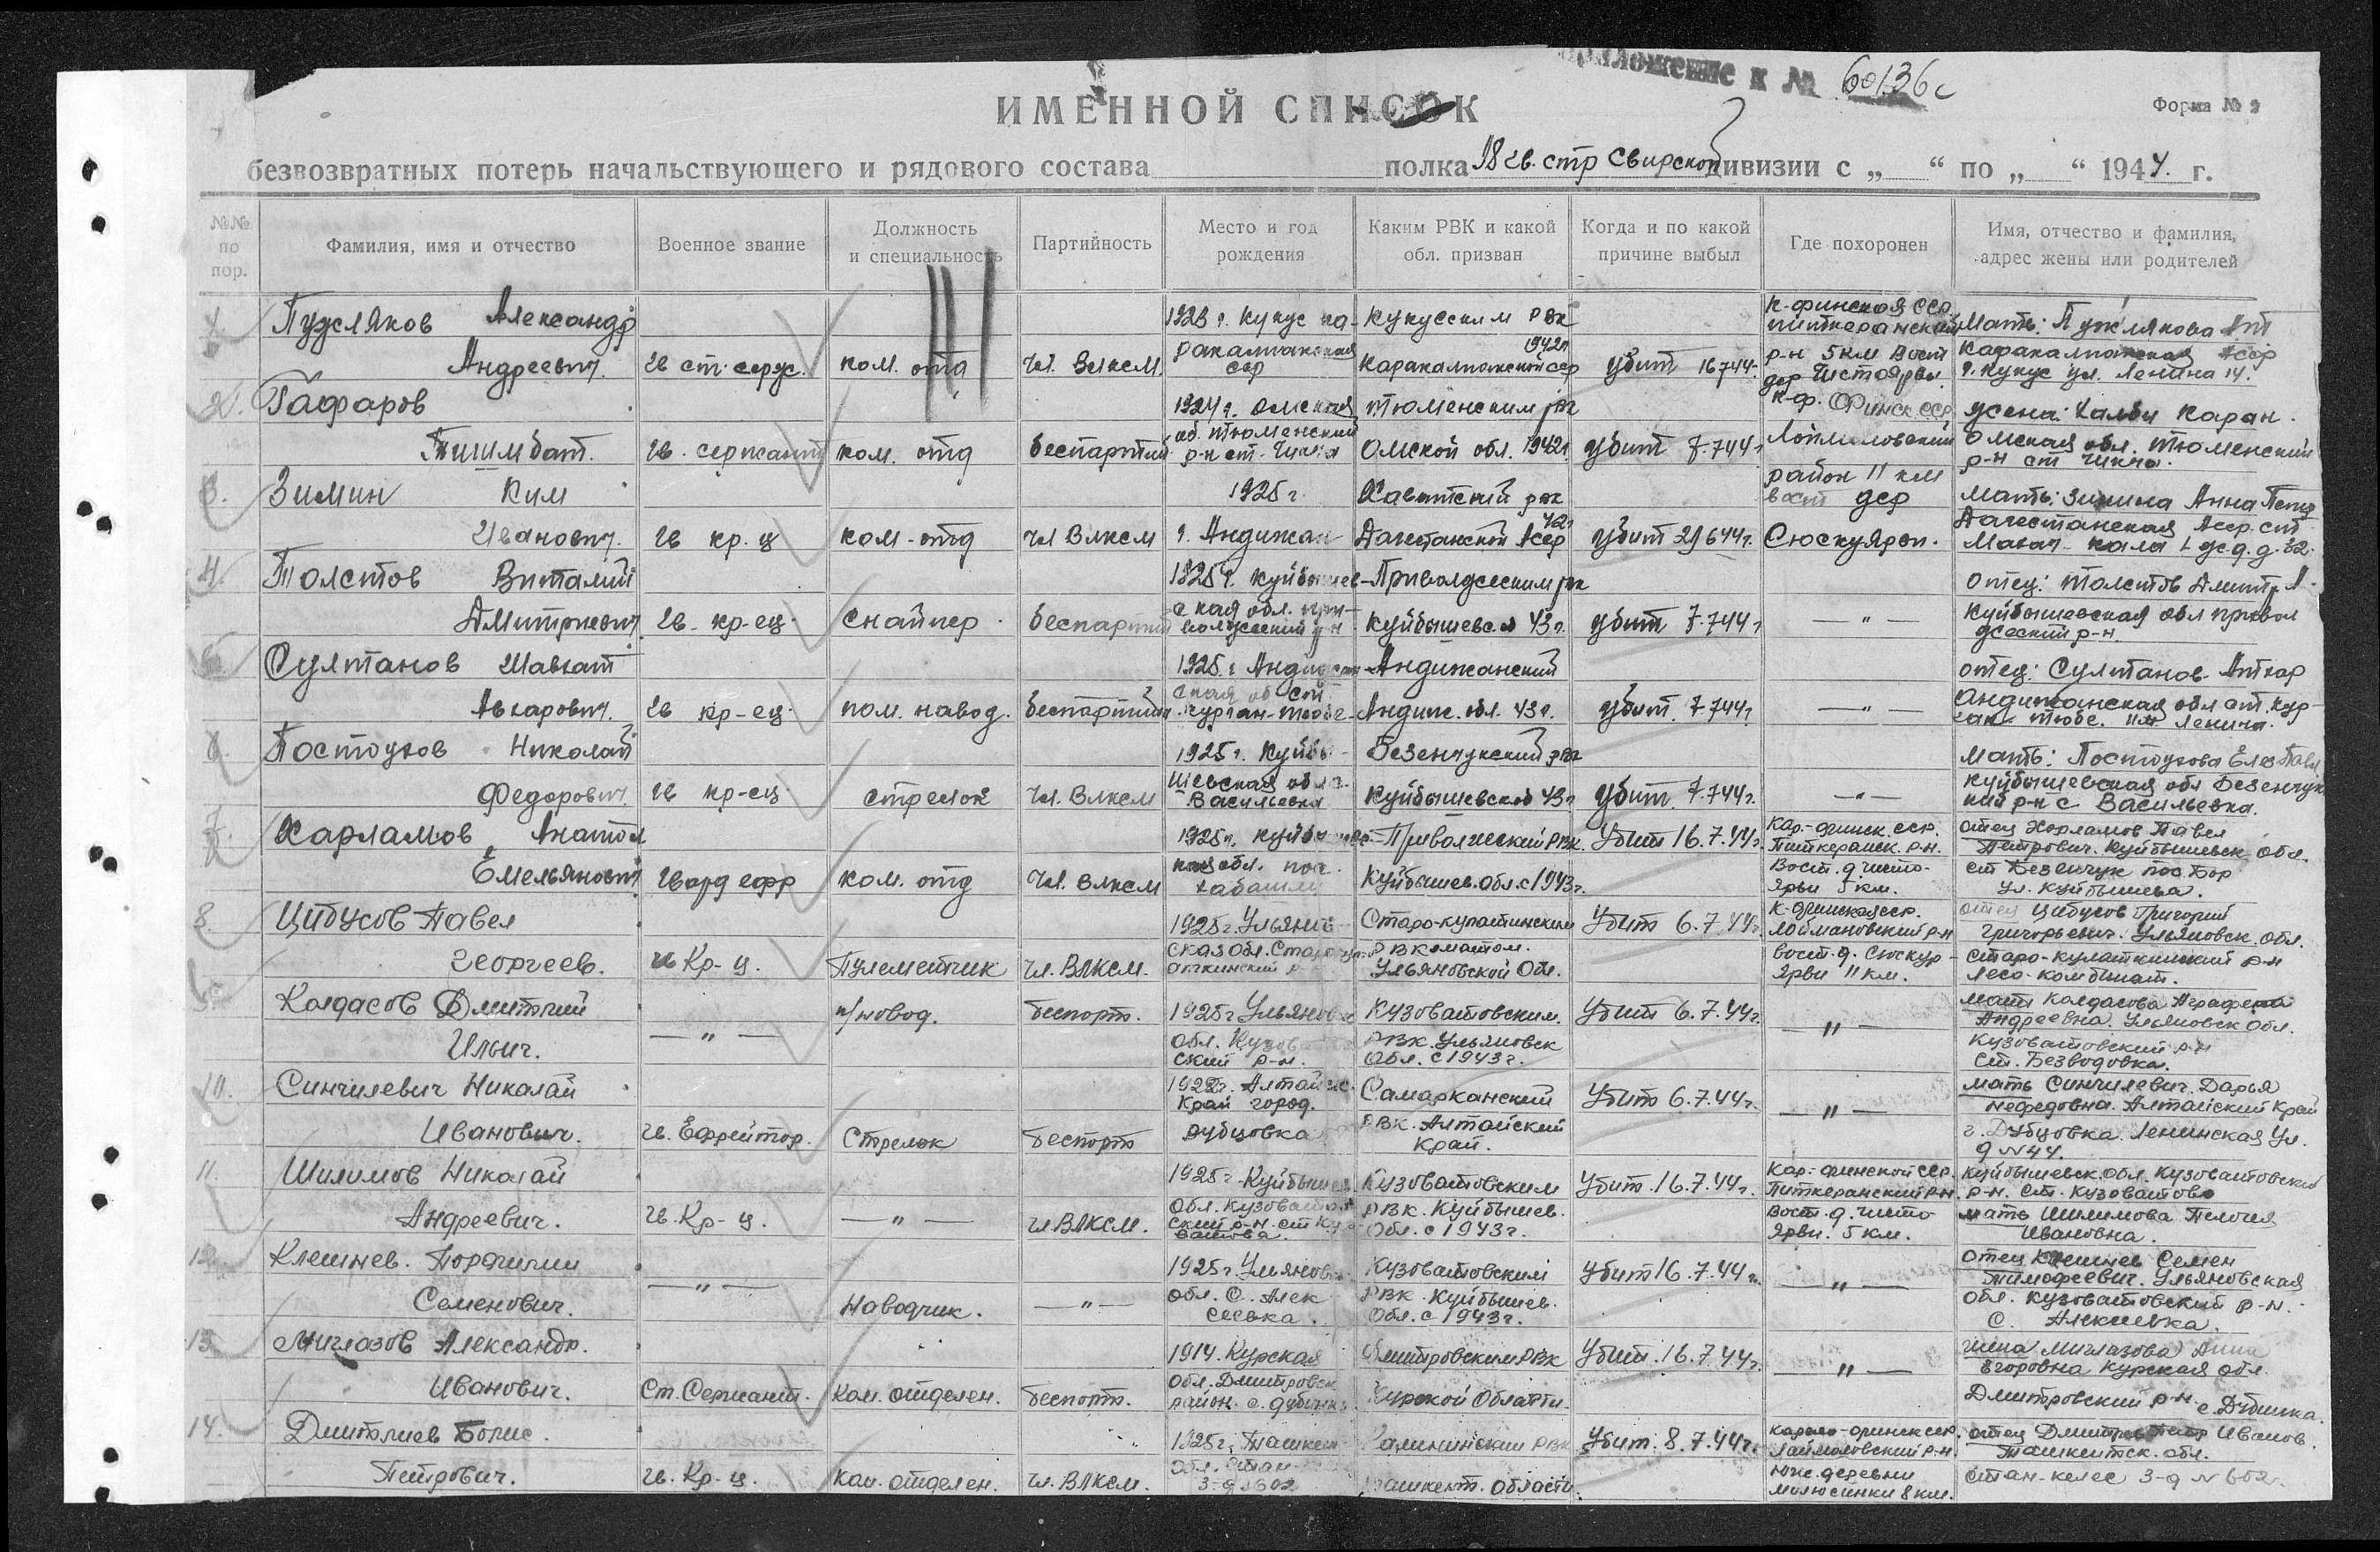 приложение к № 60136с
ИМЕННОЙ СПИСОК
Форма № 2
безвозвратных потерь начальствующего и рядового состава полка 18 гв. стр Свирской дивизии с „ “ по „ “ 1944 г.
№№ по пор.
Фамилия, имя и отчество
Военное звание
Должность и специальность
Партийность
Место и год рождения
Каким РВК и какой обл. призван
Когда и по какой причине выбыл
Где похоронен
Имя, отчество и фамилия, адрес жены или родителей
1. Пужляков Александр 1923 г. Нукус ка- Нукусским РВК К-финская ССР Мать: Пужлякова
Андреевич. гв ст. серж. ком. отд чл. Влксм ракалпакская сср Каракалпакской сср 1942г убит 16 7 44г питкеранский р-н 5 км Вост дер Чистоярви. Каракалпакская Асср г. Нукус ул. Ленина 14.
2. Гафаров 1924 г. Омская Тюменским рвк К-ф. Финск ССР жена: Каран.
Тишмбат. гв. сержант ком. отд беспартий об. Тюменский р-н ст. Чикча Омской обл. 1942г. убит 7.7 44г Омская обл. Тюменский р-н ст Чикча.
3. Зимин Ким 1925 г. рвк район 11 км вост дер Мать: Зимина Анна Петр
Иванович. гв кр. ц ком-отд чл Влксм г. Андижан Дагестанской Асср 42г убит 29 6 44г. Сюскуярви. Дагестанская Асср. ст. Махач-кала
4. Толстов Виталий 1925 г. Куйбышев- Приволжским рвк отец: Толстов Дмитр
Дмитриевич гв. кр-ец снайпер беспартий ская обл. при- волжский р-н Куйбышевс. 43 г. убит 7.7 44г — " — Куйбышевская обл привол жский р-н.
5. Султанов Шавкат 1925 г. Андижан- Андижанский отец: Султанов
Авкарович. гв кр-ец. пом. навод. беспартийн ская об ст. Курган-тюбе Андиж. обл. 43 г. убит 7.7 44г — " — Андижанская обл ст. Кур- ган тюбе. им. Ленина.
6. Постоуков Николай 1925 г. Куйбы- Безенчукский рвк Мать: Постоукова
Федорович. гв кр-ец. стрелок Чл. Влксм шевская обл с. Васильевка Куйбышевской 43 г убит 7.7 44г. — " — Куйбышевская обл Безенчук ский р-н с Васильевка.
7. Харламов Анатол 1925г. Куйбышевс- Приволжский РВК. Убит 16.7.44г. Кар.-финск. сср. Питкеранск. р-н. отец Харламов Павел Петрович. Куйбышевск. обл.
Емельянович гвард ефр ком. отд Чл. Влксм кая обл. пос. Куйбышев. Обл. с 1943г. Вост. д. Чисто- Ярви 5 км. ст Безенчук пос Бор ул. Куйбышева.
8. Цибусов Павел 1925г. Ульянов- Старо-кулаткинским Убит 6.7.44г. К-финская сср. Лоймановский р-н отец Цибусов Григорий Григорьевич. Ульяновск. обл.
Георгеев. гв Кр-ц. Пулеметчик чл. ВЛКСМ. ская обл. Старокул- аткинский р-н РВкоматом. Ульяновской Обл. Вост. д. Сюскур- Ярви 11 км. Старо-кулаткинский р-н Лесо-комбинат.
9. Колдасов Дмитрий — " — п/новод. беспорт. 1925г Ульяновс Кузоватовским. Убит 6.7.44г. — " — мать Колдасова Аграфена Андреевна. Ульяновск обл.
Ильич. обл. Кузоват ский р-н. РВК. Ульяновск Обл. с 1943г. Кузоватовский р-н ст. Безводовка.
10. Синчилевич Николай 1922г. Алтайс. Край город. Самарканский Убит 6.7.44г. — " — мать Синчилевич. Дарья нефедовна. Алтайский Край
Иванович. гв. Ефрейтор. Стрелок беспорт Рубцовка РВК. Алтайский Край. г. Рубцовка. Ленинская Ул. д N 44.
11. Шилимов Николай 1925г. Куйбышев Кузоватовским Убит. 16.7.44г. Кар-финской сср. Питкеранский р-н. Куйбышевск. обл. Кузоватовский р-н. ст. Кузоватово
Андреевич. гв. Кр-ц. — " — чл ВЛКСМ. Обл. Кузоватов ский р-н. ст Куз- ватова. РВК. Куйбышев. Обл. с 1943г. Вост. д. Чисто Ярви. 5 км. мать Шилимова Пелогия Ивановна.
12. Клешнев. Порфирий — " — 1925г. Ульянов. Кузоватовским Убит 16.7.44г. — " — отец Клешнев Семен тимофеевич. Ульяновская
Семенович. Наводчик. — " — обл. С. Алек сеевка. РВК. Куйбышев. Обл. с 1943г. обл. Кузоватовский р-н. С. Алексиевка.
13. Миглазов Александр. 1914. Курская Дмитровским РВК Убит. 16.7.44г. — " — жина Миглазова Анна Егоровна Курская обл.
Иванович. Ст. Сержант. Ком. отделен. беспорт. обл. Дмитровск район. с. Дубинка Курской Области. Дмитровский р-н с. Дубинка.
14. Дмитриев Борис. 1925г. Ташкен Калининским РВК Убит. 8.7.44г. Карело-финск сср. Лаймоловский р-н. отец Дмитриев Петр Иванов. Ташкентск. обл.
Петрович. гв. Кр-ц. Ком. отделен. чл. ВЛКСМ. обл. Стан. 3-д 602 Ташкент. области. Юж. деревни 8 км. стан-келес 3-д N 602.